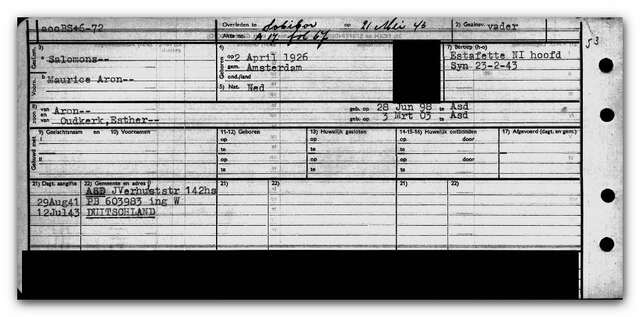 aooBS+6-72
Overleden te Sobibor op 21 Mei 43
2) Gezinsv: vader
Akte no. A 17 fol 67
53
3) Salomons--
4) op 2 April 1926
gem. Amsterdam
ond./land
5) Nat. Ned
7) Beroep (h-o)
Estafette NI hoofd
Syn 23-2-43
Maurice Aron--
van Aron-- geb. op 28 Jun 98 te Asd
en van Oudkerk, Esther-- geb. op 3 Mrt 03 te Asd
9) Geslachtsnaam en 10) Voornamen
11-12) Geboren
13) Huwelijk gesloten
14-15-16) Huwelijk ontbonden
17) Afgevoerd (dagt. en gem.)
op op op
te te te
op op op
te te te
21) Dagt. aangifte 22) Gemeente en adres 21) 22) 21) 22)
ASD JVerhuststr 142hs
29Aug41 PB 603983 ing W
12Jul43 DUITSCHLAND